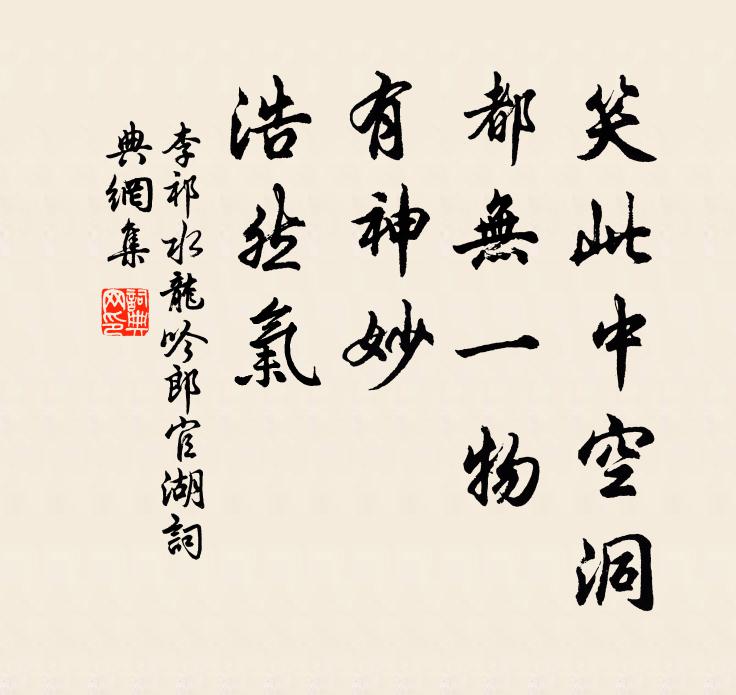 笑此中空洞
都無一物
有神妙
浩然氣
李祁水龍吟郎官湖詞
典網集
詞典
网印